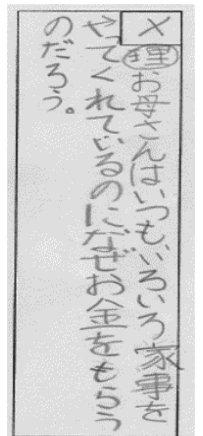 ×
理お母さんはいつもいろいろ家事を
やってくれているのになぜお金をもらう
のだろう。